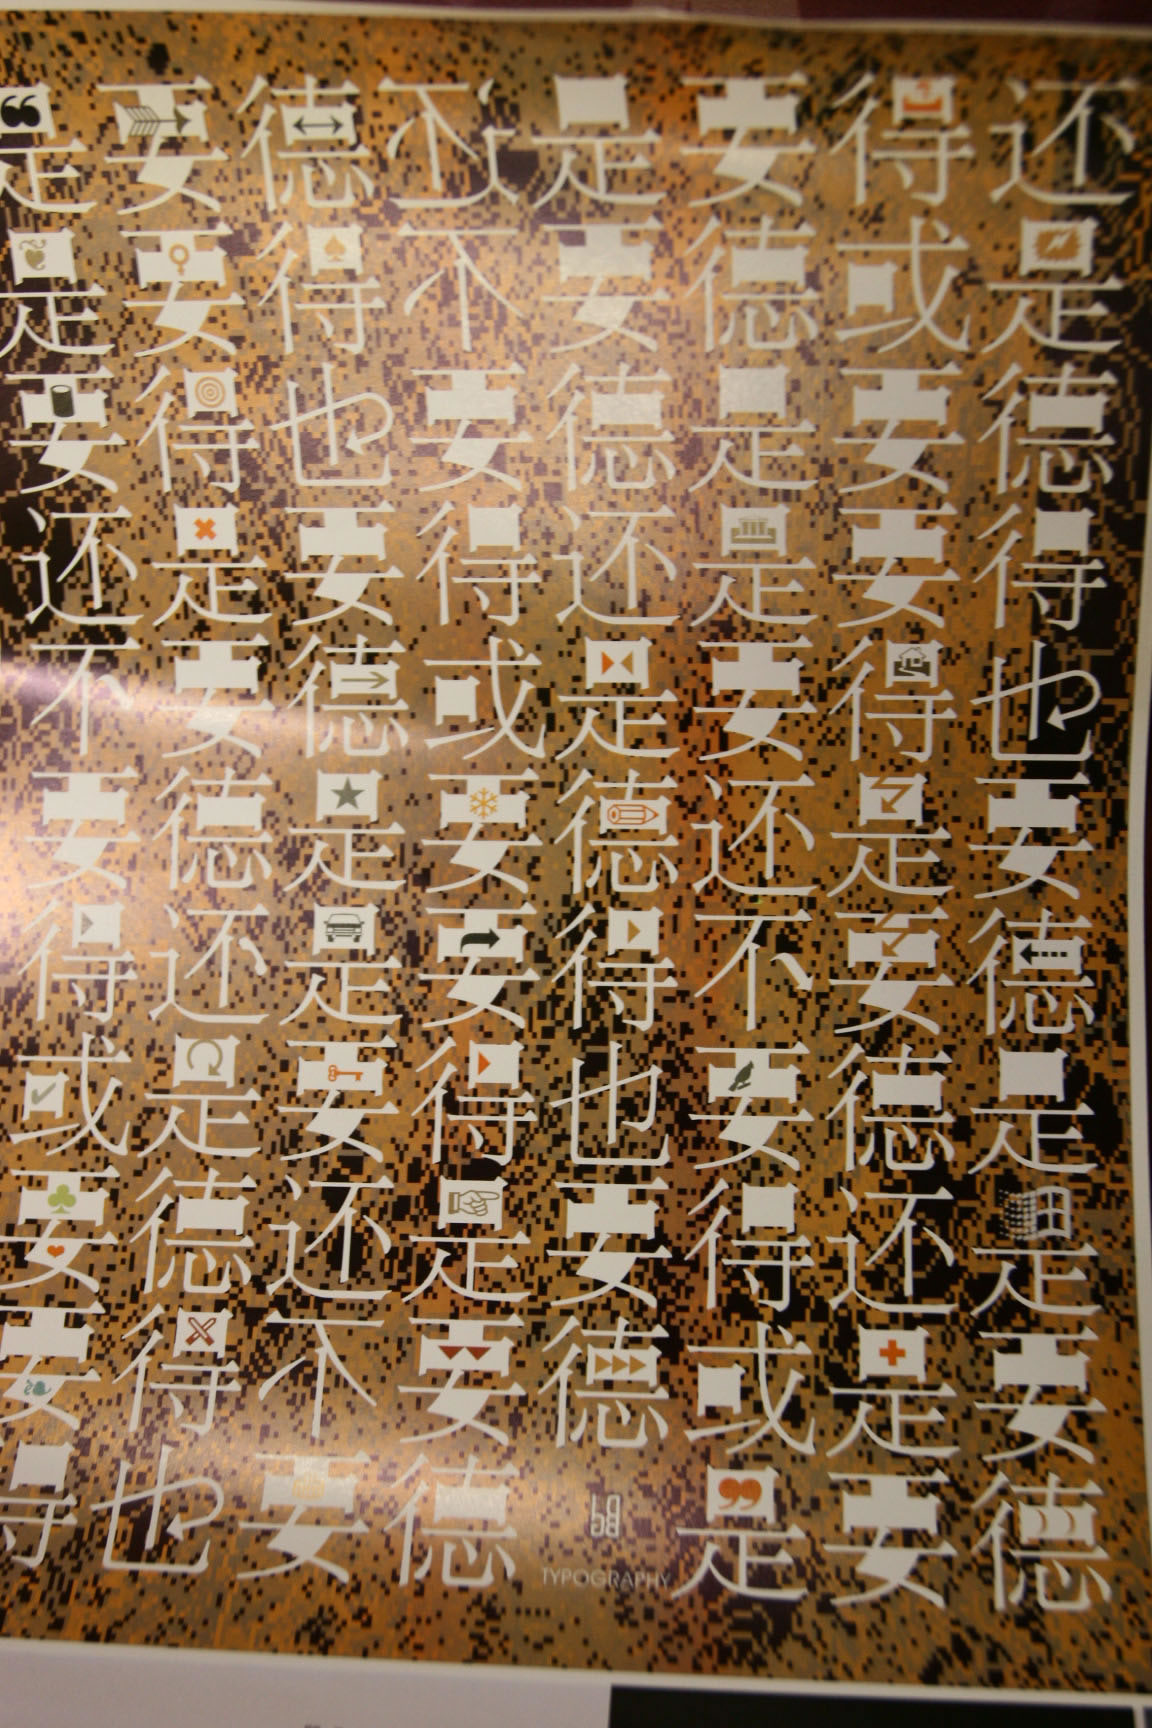 是要德还是要得还
是要得不要德或是
要得也要德是要德
还是要得还是要得
不要德或是要得也
要德是要德还是要
得还是要得不要德
或是要得也要德是
要德还是要得还是
要得不要德或是要
得也要德 是要德
TYPOGRAPHY